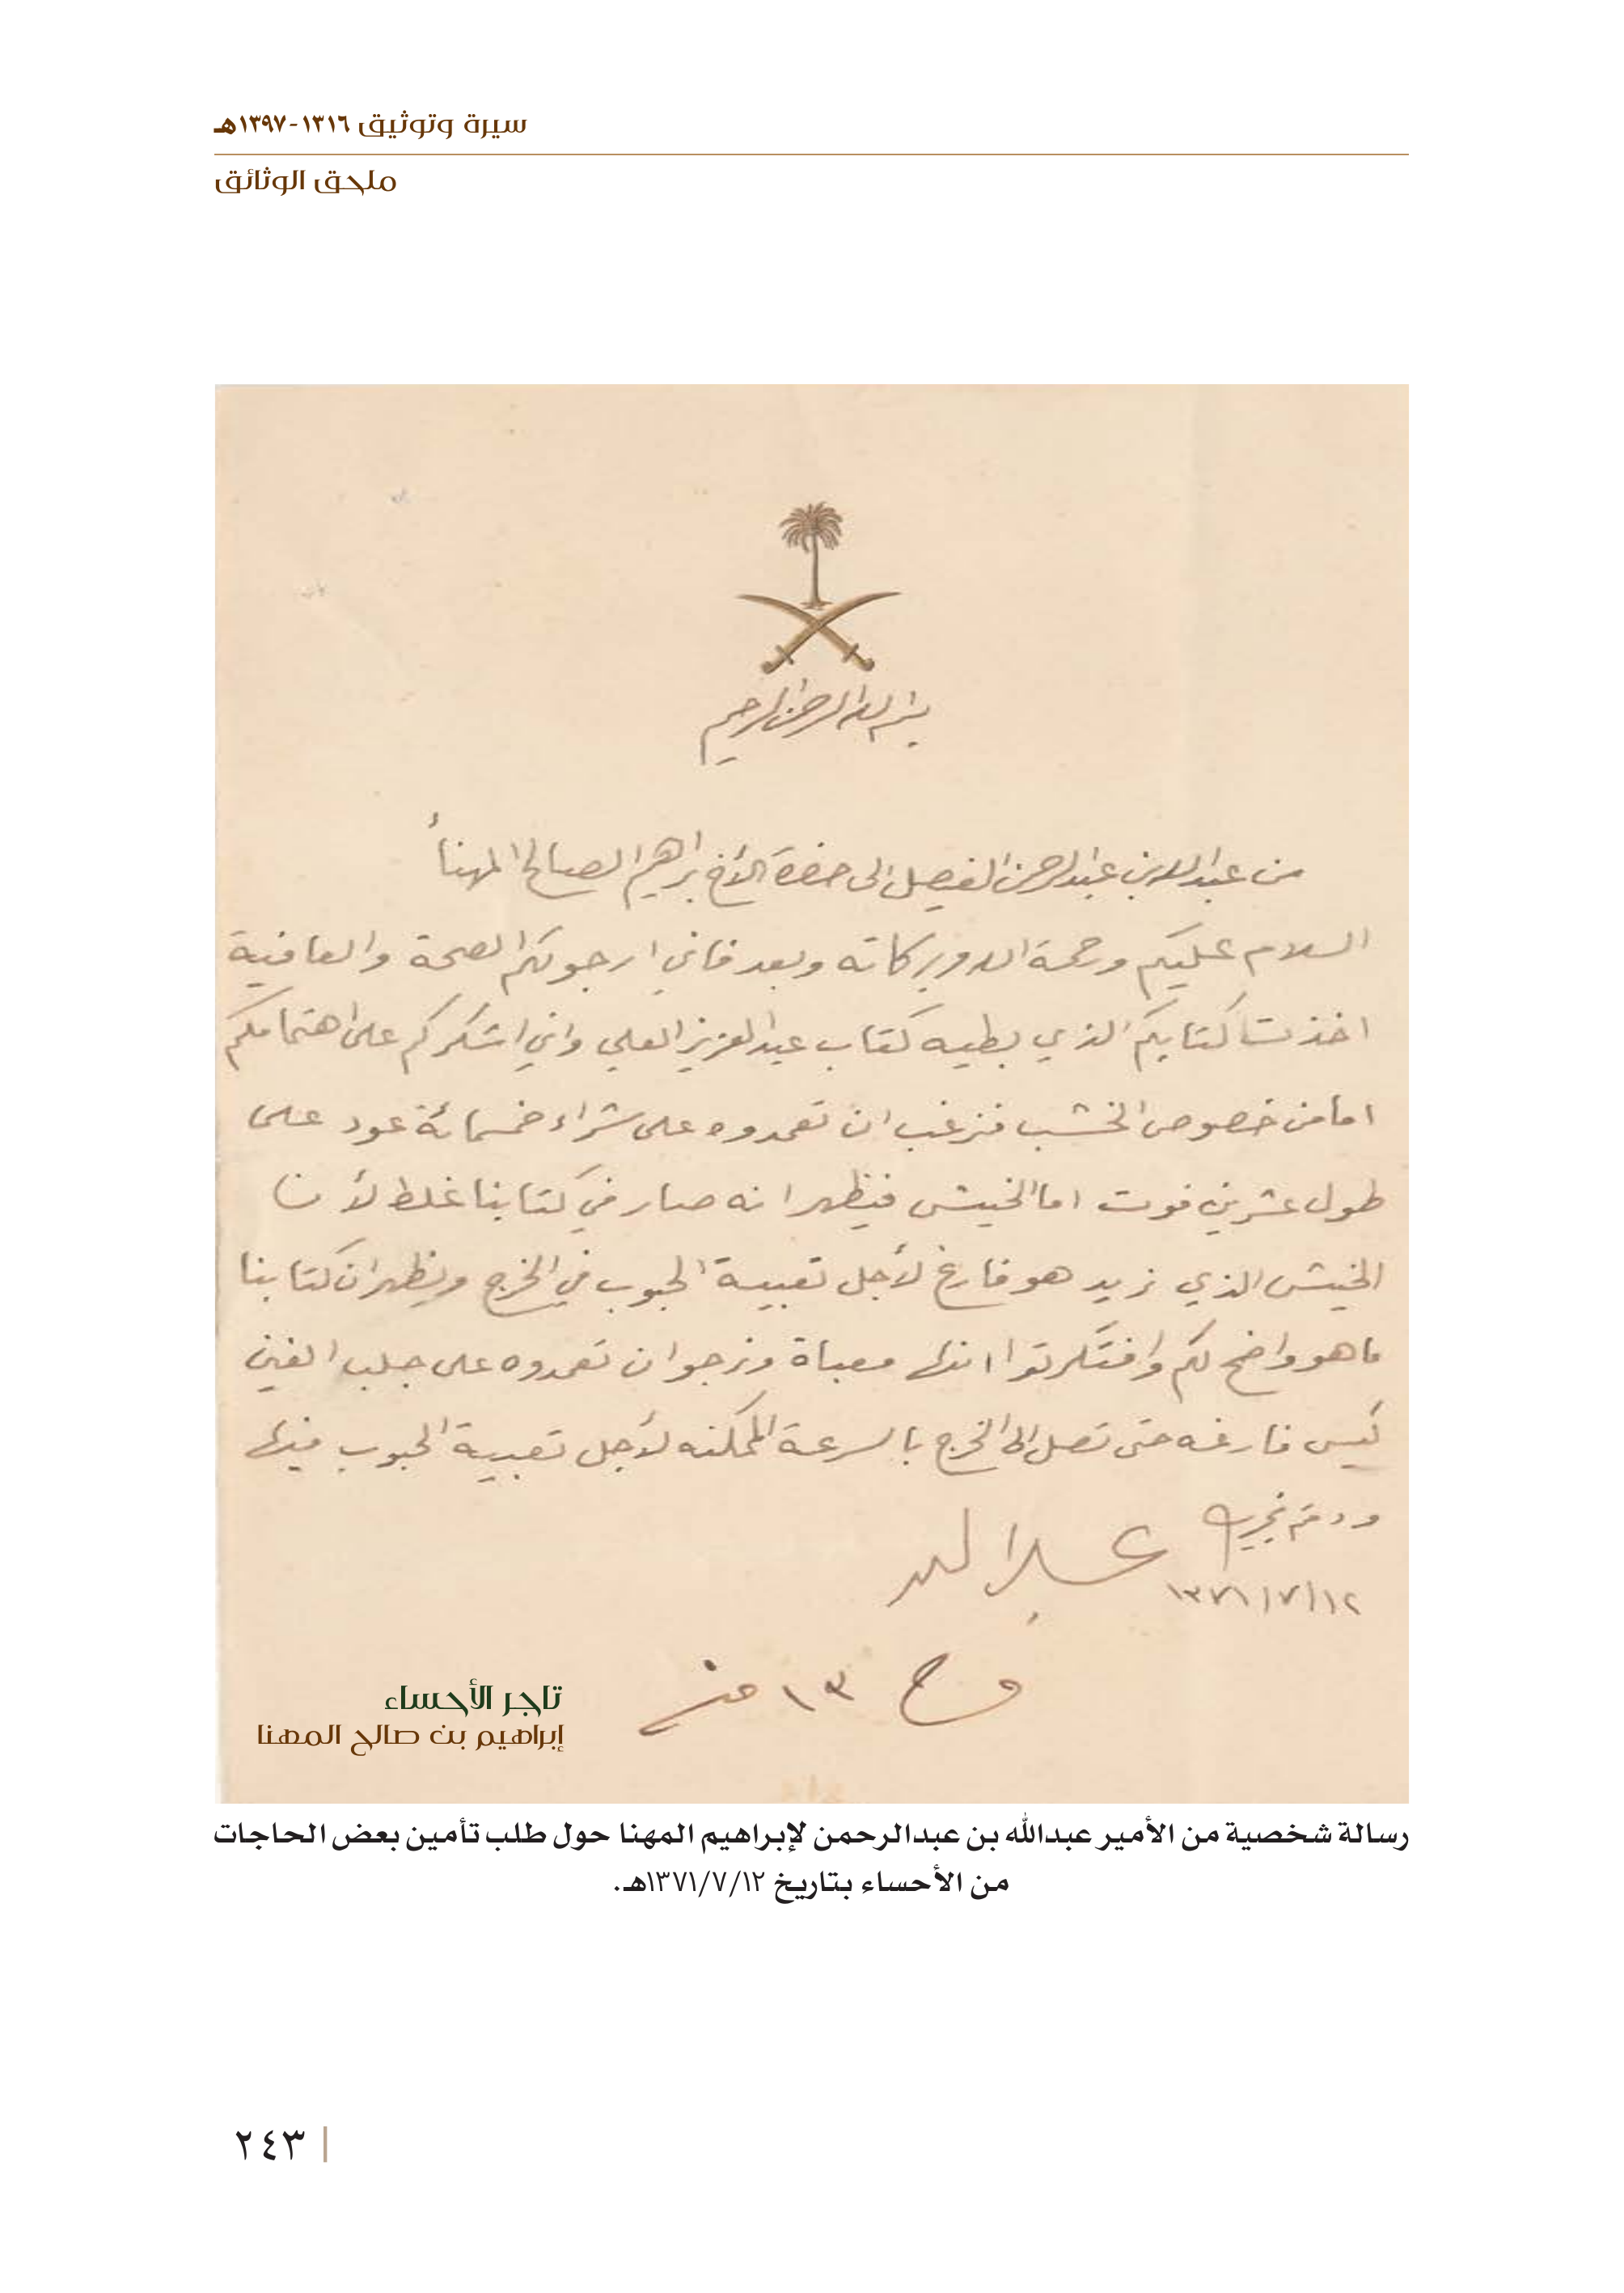 سيرة وتوثيق ١٣١٦-١٣٩٧هـ
ملحق الوثائق
بسم الله الرحمن الرحيم
من عبدالله بن عبدالرحمن الفيصل الى حضرة الأخ ابراهيم الصالح المهنأ
السلام عليكم ورحمة الله وبركاته وبعد فاني ارجو لكم الصحة والعافية
اخذت كتابكم الذي بطيه كتاب عبدالعزيز العلي واني اشكركم على اهتمامكم
اما من خصوص الخشب فنرغب ان تعمدوه على شراء خمسمائة عود على
طول عشرين فوت اما الخيش فيظهر انه صار في كتابنا غلط لأن
الخيش الذي نريد هو فارغ لأجل تعبية الحبوب في الخرج ويظهر ان كتابنا
ما هو واضح لكم وافتكرتوا انها معباة ونرجو ان تعمدوه على جلب الفين
كيس فارغه حتى تصل الى الخرج بالسرعة الممكنه لأجل تعبية الحبوب فيها
ودمتم بخير
عبدالله
١٣٧١/٧/١٢
١٣ منه
تاجر الأحساء
إبراهيم بن صالح المهنا
رسالة شخصية من الأمير عبدالله بن عبدالرحمن لإبراهيم المهنا حول طلب تأمين بعض الحاجات
من الأحساء بتاريخ ١٣٧١/٧/١٢هـ.
٢٤٣